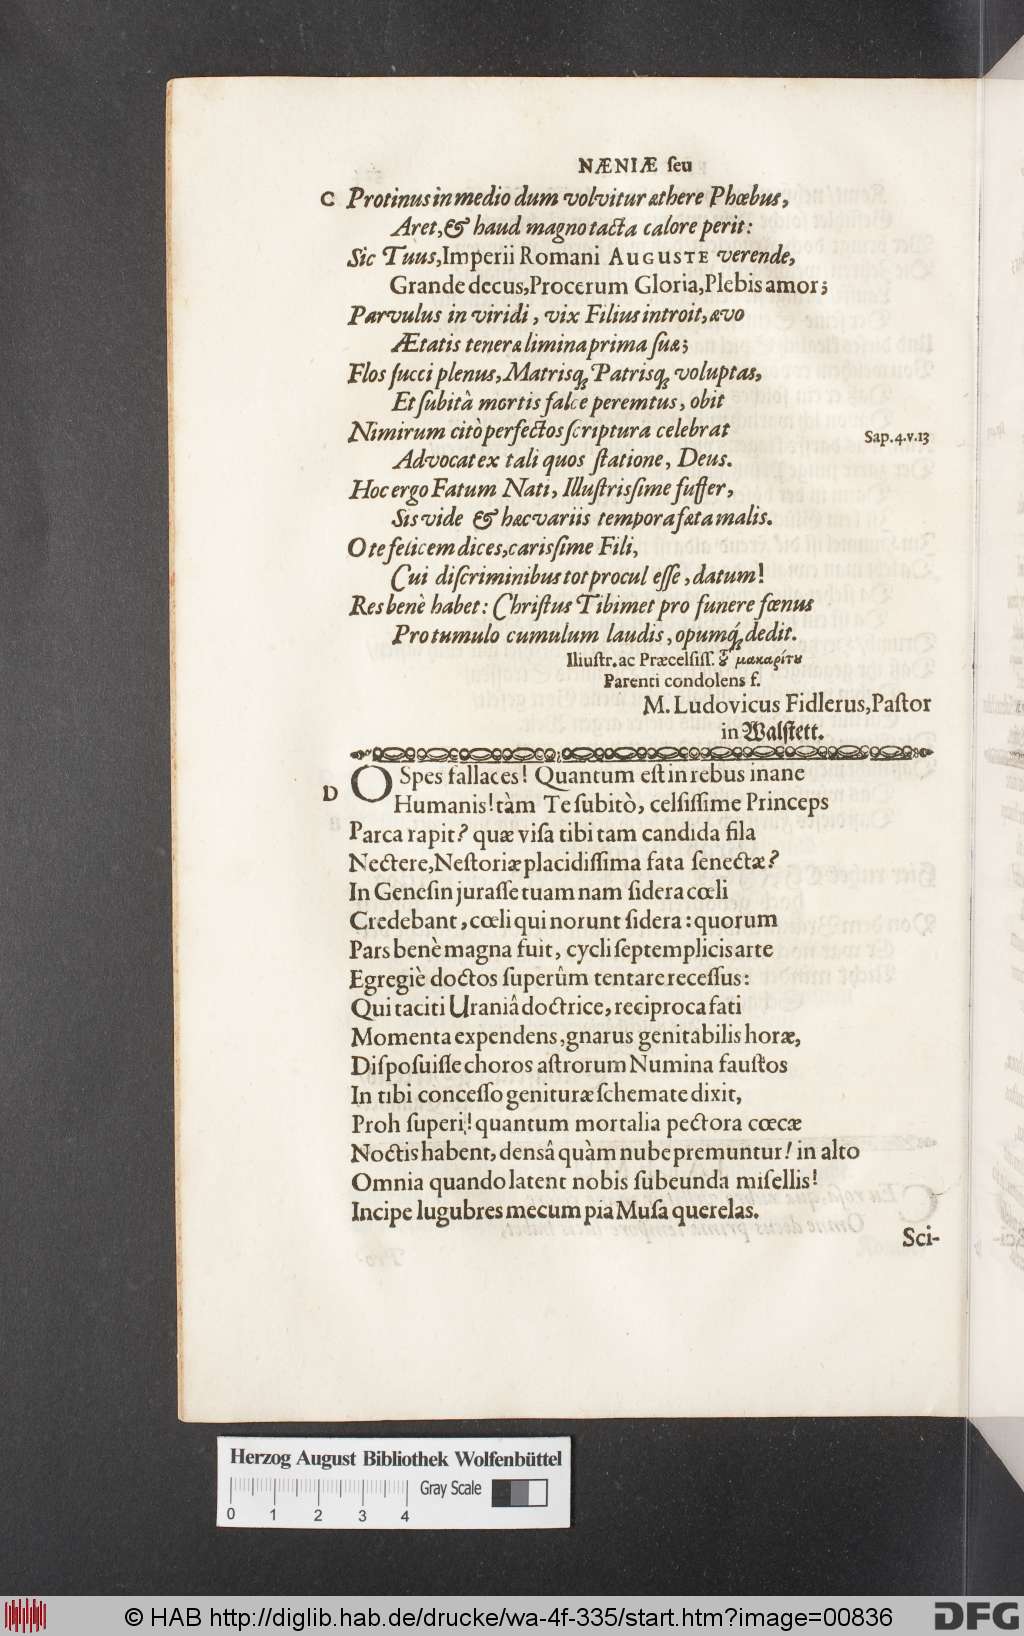 NÆNIÆ ſeu
C Protinus in medio dum volvitur æthere Phœbus,
Aret, & haud magno tacta calore perit:
Sic Tuus, Imperii Romani AUGUSTE verende,
Grande decus, Procerum Gloria, Plebis amor;
Parvulus in viridi, vix Filius introit, ævo
Ætatis teneræ limina prima ſuæ;
Flos ſucci plenus, Matrisq; Patrisq; voluptas,
Et ſubitâ mortis falce peremtus, obit
Nimirum citò perfectos ſcriptura celebrat
Sap. 4. v. 13
Advocat ex tali quos ſtatione, Deus.
Hoc ergo Fatum Nati, Illuſtrisſime ſuffer,
Sis vide & hæc variis tempora fæta malis.
O te felicem dices, carisſime Fili,
Cui diſcriminibus tot procul eſſe, datum!
Res benè habet: Chriſtus Tibimet pro funere fœnus
Pro tumulo cumulum laudis, opumq́; dedit.
Iliuſtr. ac Præcelſiſſ. Ȣ͂ μακαρίτȣ
Parenti condolens f.
M. Ludovicus Fidlerus, Paſtor
in Walſtett.
D O Spes fallaces! Quantum eſt in rebus inane
Humanis! tàm Te ſubitò, celſiſſime Princeps
Parca rapit? quæ viſa tibi tam candida fila
Nectere, Neſtoriæ placidiſſima fata ſenectæ?
In Geneſin juraſſe tuam nam ſidera cœli
Credebant, cœli qui norunt ſidera: quorum
Pars benè magna fuit, cycli ſeptemplicis arte
Egregiè doctos ſuperûm tentare receſſus:
Qui taciti Uraniâ doctrice, reciproca fati
Momenta expendens, gnarus genitabilis horæ,
Diſpoſuiſſe choros aſtrorum Numina fauſtos
In tibi conceſſo genituræ ſchemate dixit,
Proh ſuperi! quantum mortalia pectora cœcæ
Noctis habent, densâ quàm nube premuntur! in alto
Omnia quando latent nobis ſubeunda miſellis!
Incipe lugubres mecum pia Muſa querelas.
Sci-
Herzog August Bibliothek Wolfenbüttel
Gray Scale
0 1 2 3 4
© HAB http://diglib.hab.de/drucke/wa-4f-335/start.htm?image=00836
DFG